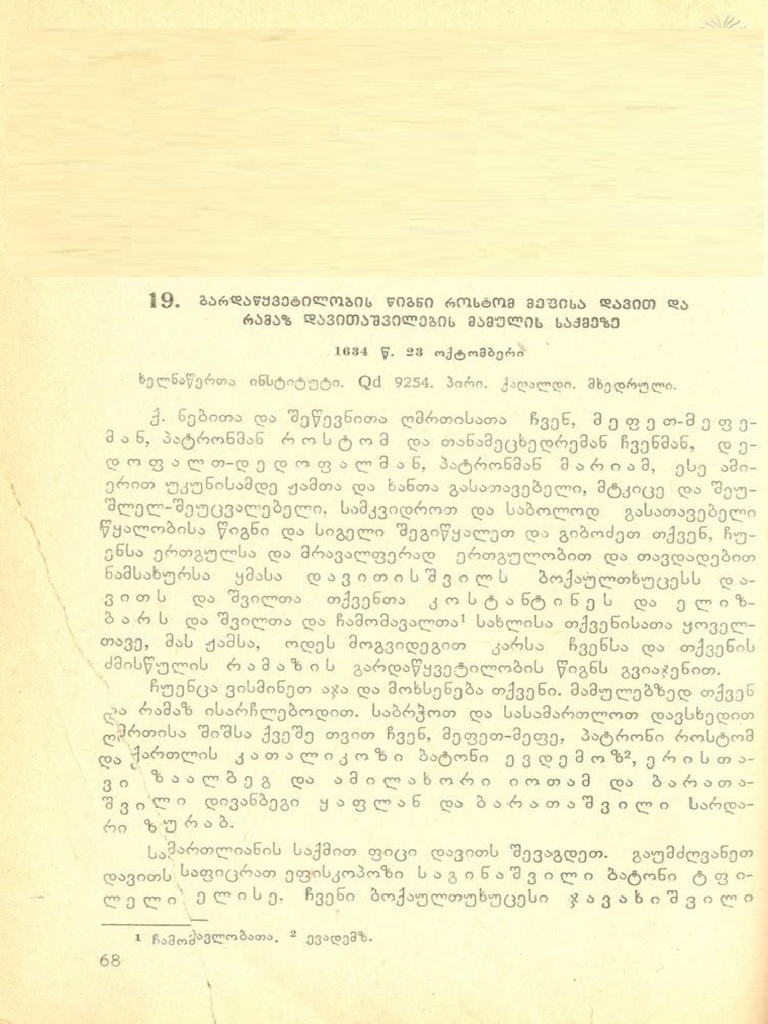 19. გარდაწყვეტილობის წიგნი როსტომ მეფისა დავით და
რამაზ დავითაშვილების მამულის საქმეზე
1634 წ. 23 ოქტომბერი
ხელნაწერთა ინსტიტუტი. Qd 9254. პირი. ქაღალდი. მხედრული.
ქ. ნებითა და შეწევნითა ღმრთისათა ჩვენ, მეფეთ-მეფე-
მან, პატრონმან როსტომ და თანამეცხედრემან ჩვენმან, დე-
დოფალთ-დედოფალმან, პატრონმან მარიამ, ესე ამი-
ერით უკუნისამდე ჟამთა და ხანთა გასათავებელი, მტკიცე და შეუ-
შლელ-შეუცვალებელი, სამკვიდროთ და საბოლოდ გასათავებელი
წყალობისა წიგნი და სიგელი შეგიწყალეთ და გიბოძეთ თქვენ, ჩუ-
ენსა ერთგულსა და მრავალფერად ერთგულობით და თავდადებით
ნამსახურსა ყმასა დავითისშვილს ბოქაულთხუცესს და-
ვითს და შვილთა თქვენთა კოსტანტინეს და ელიზ-
ბარს და შვილთა და ჩამომავალთა¹ სახლისა თქვენისათა ყოველ-
თავე, მას ჟამსა, ოდეს მოგვიდეგით კარსა ჩვენსა და თქვენის
ძმისწულის რამაზის გარდაწყვეტილობის წიგნს გვიაჯენით.
ჩუენცა ვისმინეთ აჯა და მოხსენება თქვენი. მამულებზედ თქვენ
და რამაზ ისარჩლებოდით. საბრჭოთ და სასამართლოთ დავსხედით
ღმრთისა შიშსა ქვეშე თვით ჩვენ, მეფეთ-მეფე, პატრონი როსტომ
და ქართლის კათალიკოზი ბატონი ევდემოზ², ერისთა-
ვი ზაალბეგ და ამილახორი იოთამ და ბარათა-
შვილი დივანბეგი ყაფლან და ბარათაშვილი სარდა-
რი ზურაბ.
სამართლიანის საქმით ფიცი დავითს შევაგდეთ. გაუმძღვანეთ
დავითს საფიცრათ ეფისკოპოზი საგინაშვილი ბატონი ტფი-
ლელი ელისე, ჩვენი ბოქაულთუხუცესი ჯავახიშვილი
¹ ჩამომავლობათა. ² ევადემზ.
68